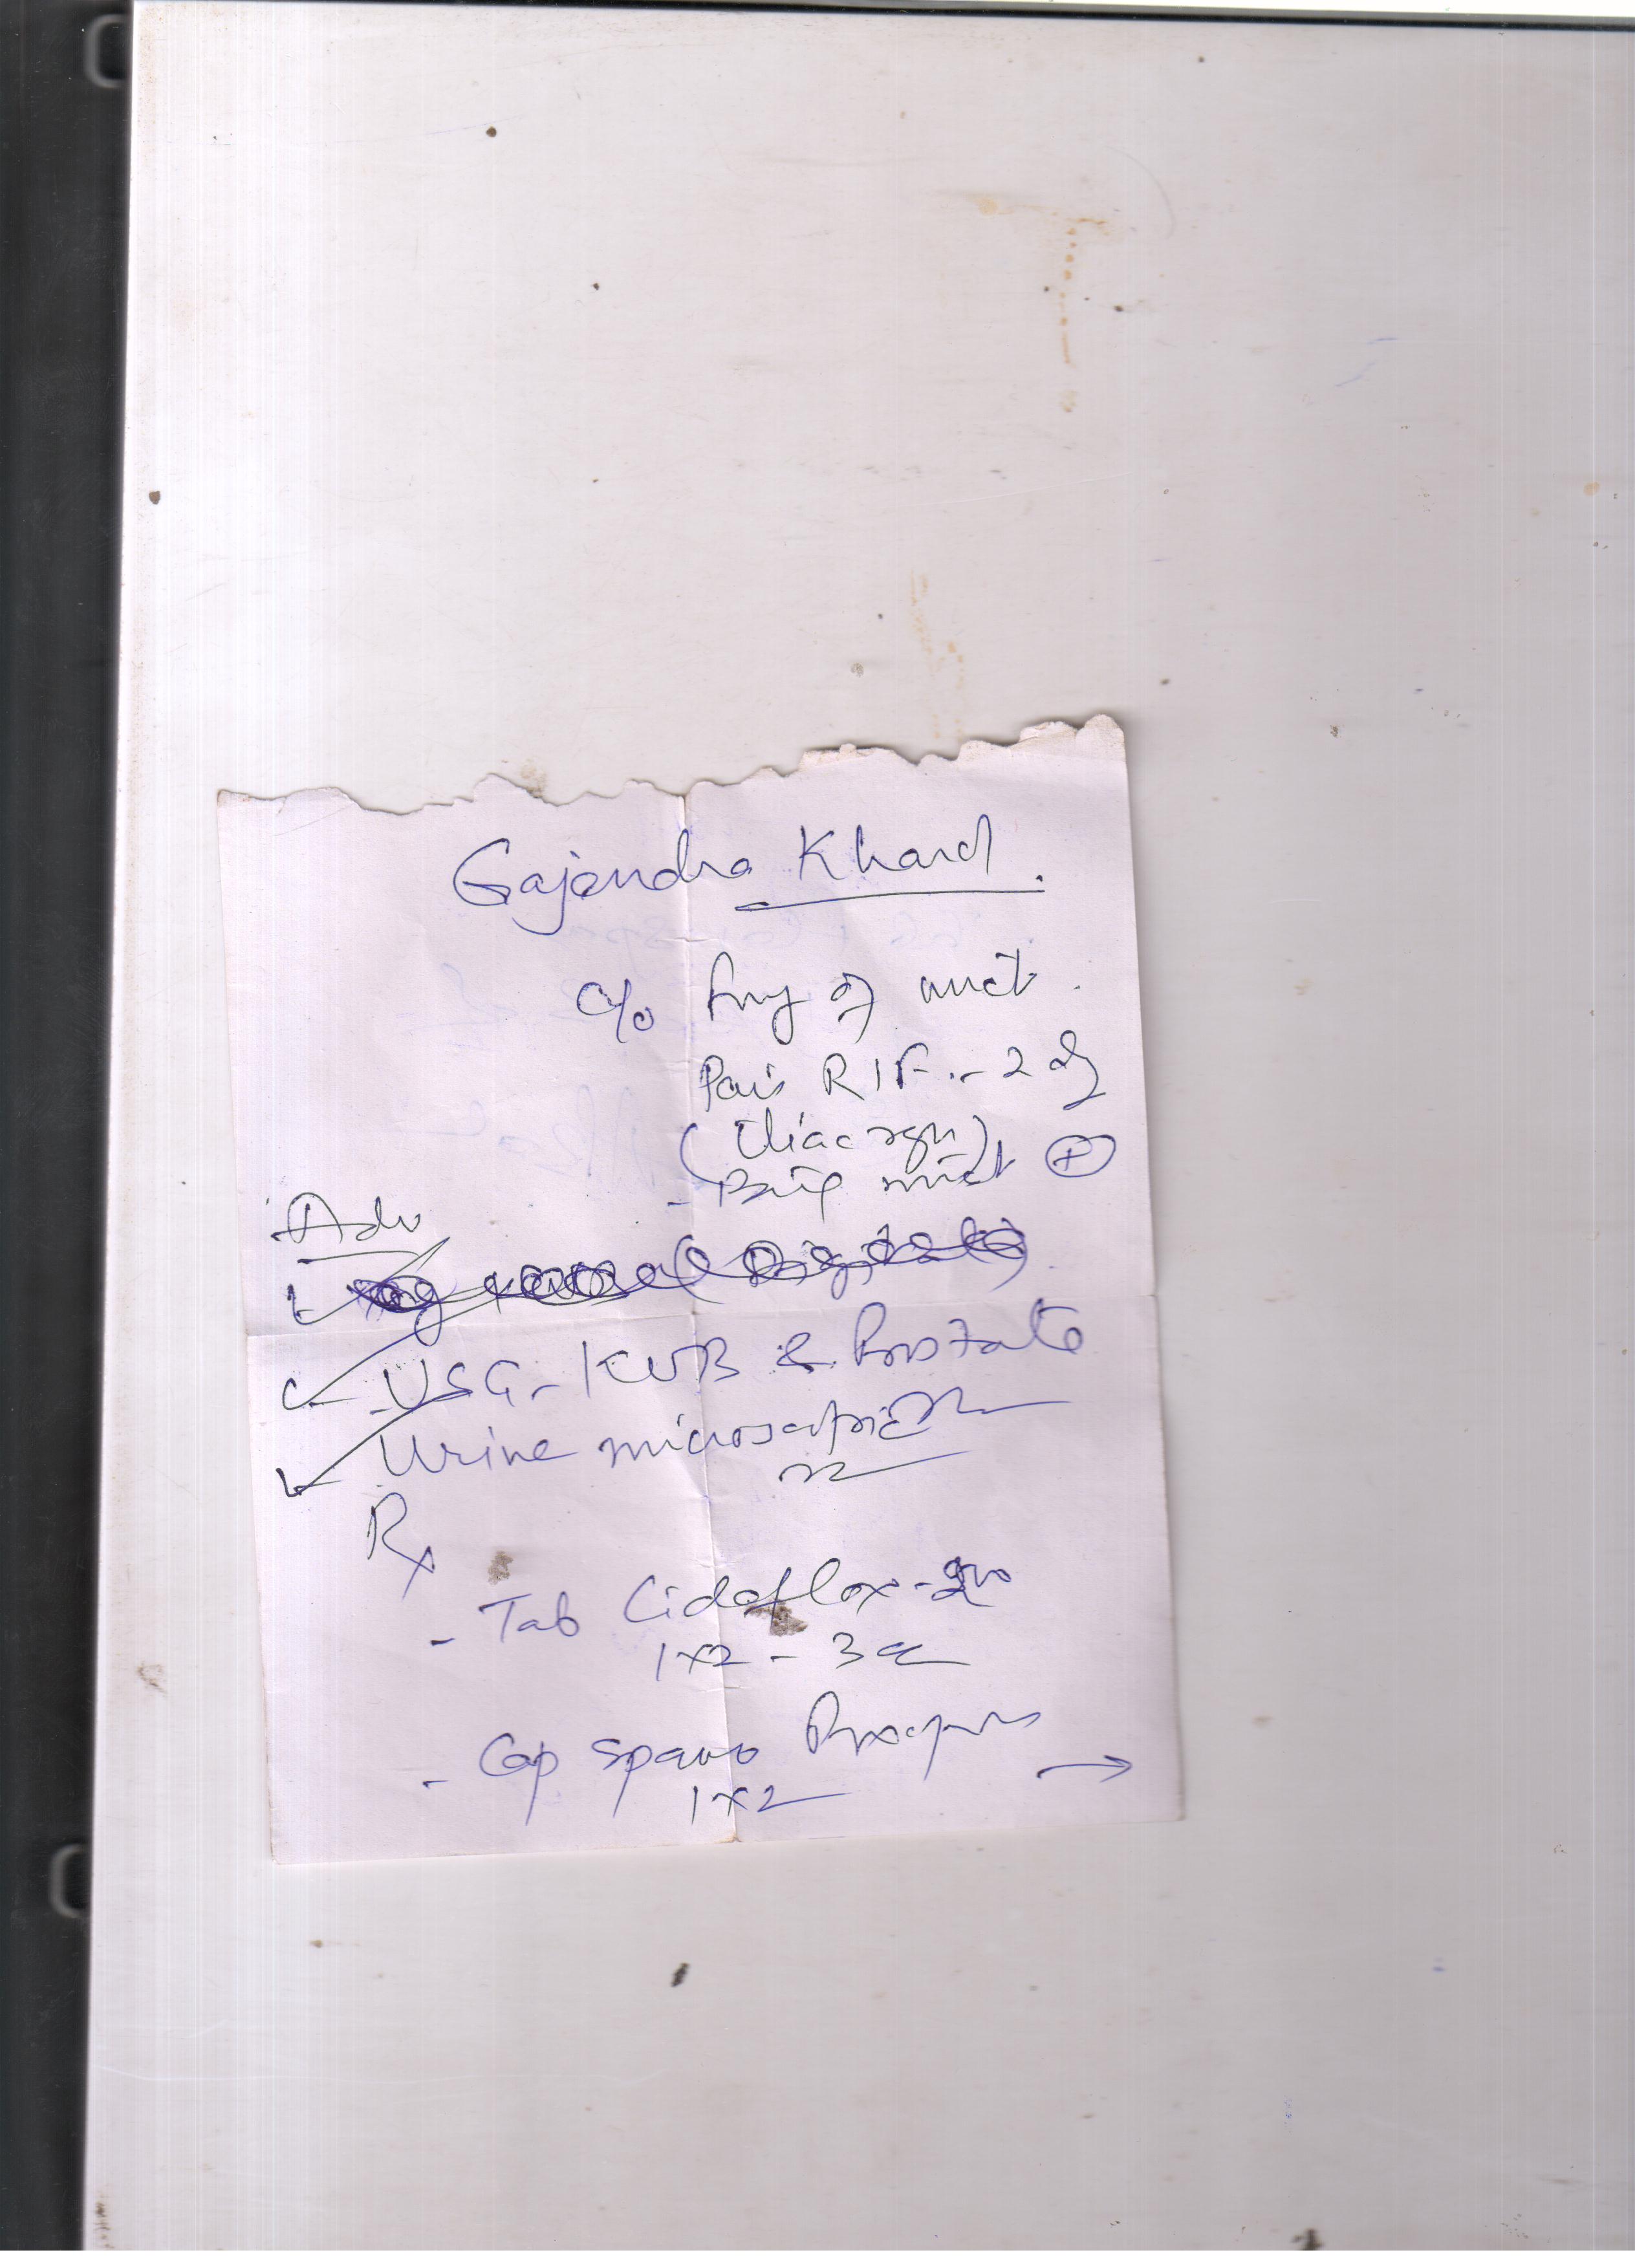 Gajendra Khand.
c/o Freq of mict.
Pain RIF - 2 dy
(Iliac rgn)
- Burn mict ⊕
Adv
- USG - KUB & Prostate
- Urine microscopic
Rx
- Tab Cidoflox - 200
1x2 - 3d
- Cap Spasmo Proxyvon
1x2 →